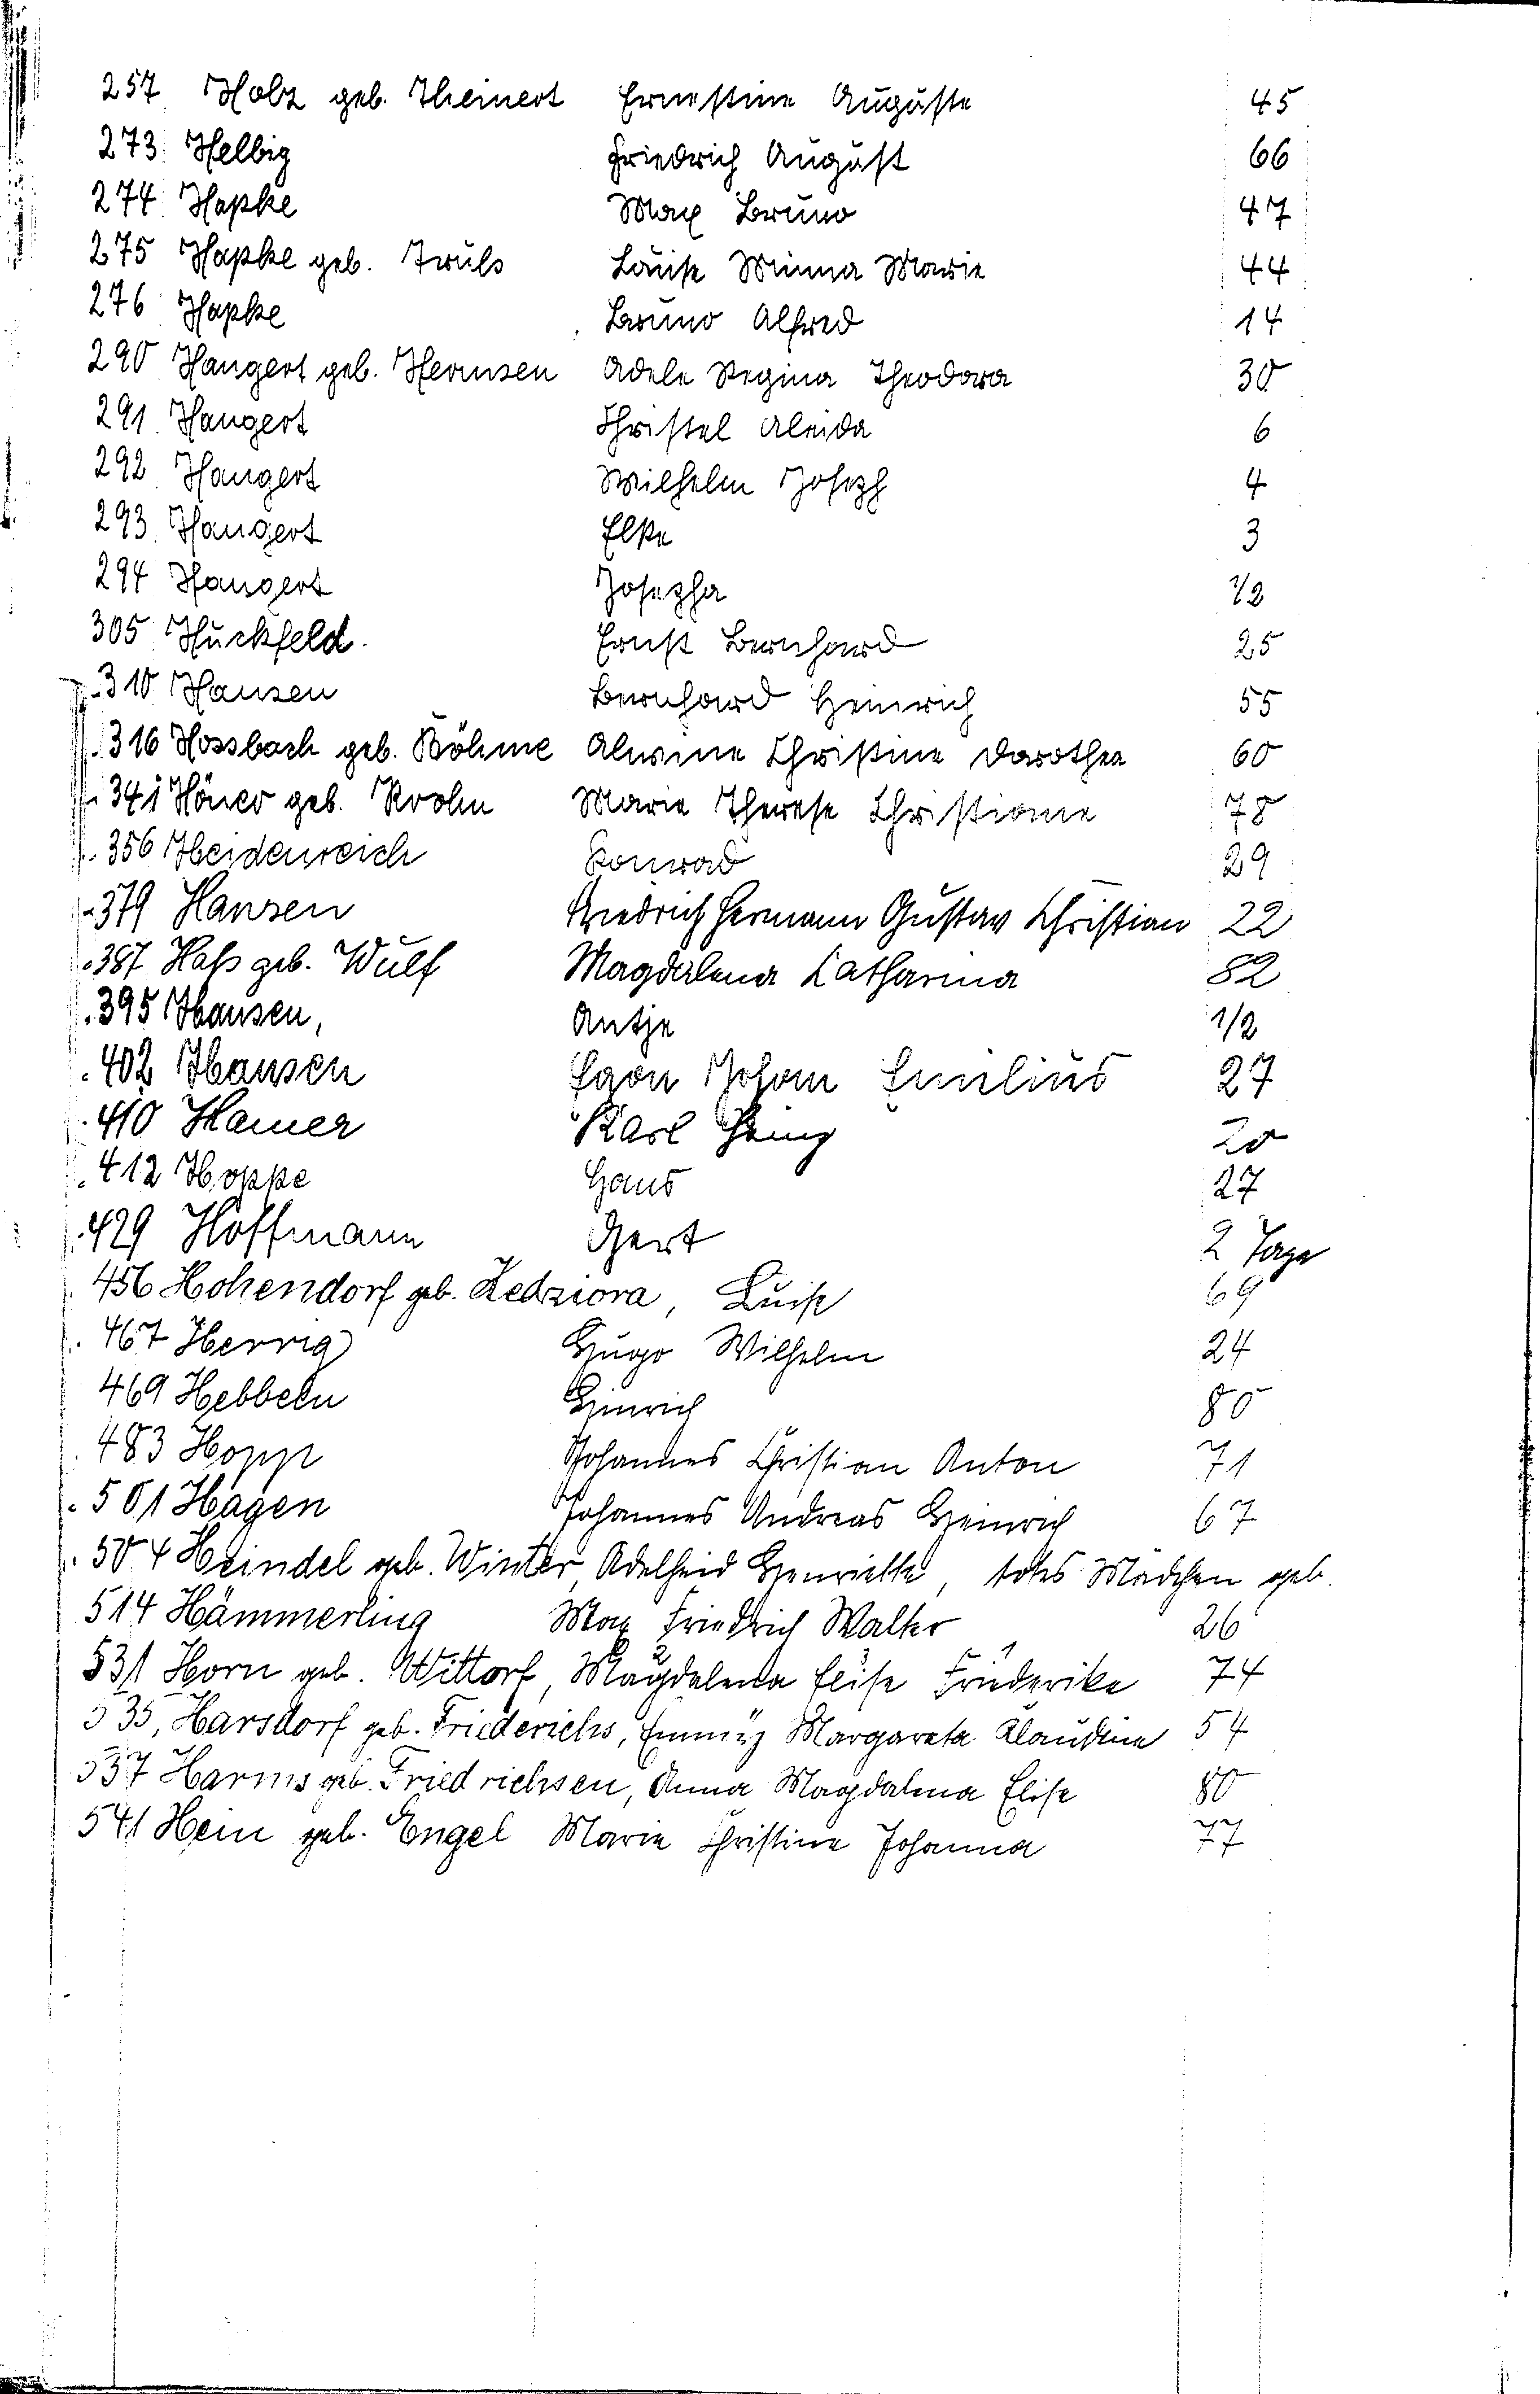 257 Holz geb. Theinert Ernestine Auguste 45
273 Helbig Friedrich August 66
274 Hapke Max Bruno 47
275 Hapke geb. Truls Louise Minna Marie 44
276 Hapke Bruno Alfred 14
290 Hangert geb. Hermsen Adele Regina Theodora 30
291 Hangert Christel Aleida 6
292 Hangert Wilhelm Joseph 4
293 Hangert Elke 3
294 Hangert Josepha 1/2
305 Huckfeld Ernst Bernhard 25
310 Hansen Bernhard Heinrich 55
316 Hossbach geb. Böhme Alwine Christine Dorothea 60
341 geb. Krohn Marie Therese Christiane 78
356 Heidenreich Konrad 29
379 Hansen Friedrich Hermann Gustav Christian 22
387 Haß geb. Wulf Magdalena Catharina 82
395 Hansen, Antje 1/2
402 Hansen Egon Johann Emilius 27
410 Hamer Karl Heinz 20
412 Hoppe Hans 27
429 Hoffmann Gert 2 Tage
456 Hohendorf geb. Kedziora, Luise 69
467 Herrig Hugo Wilhelm 24
469 Hebbeln Hinrich 80
483 Hopp Johannes Christian Anton 71
501 Hagen Johannes Andreas Heinrich 67
504 Heindel geb. Winter, Adelheid Henriette, totes Mädchen geb.
514 Hämmerling Max Friedrich Walter 26
531 Horn geb. Wittorf, Magdalena Elise Friederike 74
535, Harsdorf geb. Friederichs, Emmy Margareta Klaudine 54
537 Harms geb. Friedrichsen, Anna Magdalena Elise 80
541 Hein geb. Engel Marie Christine Johanna 77